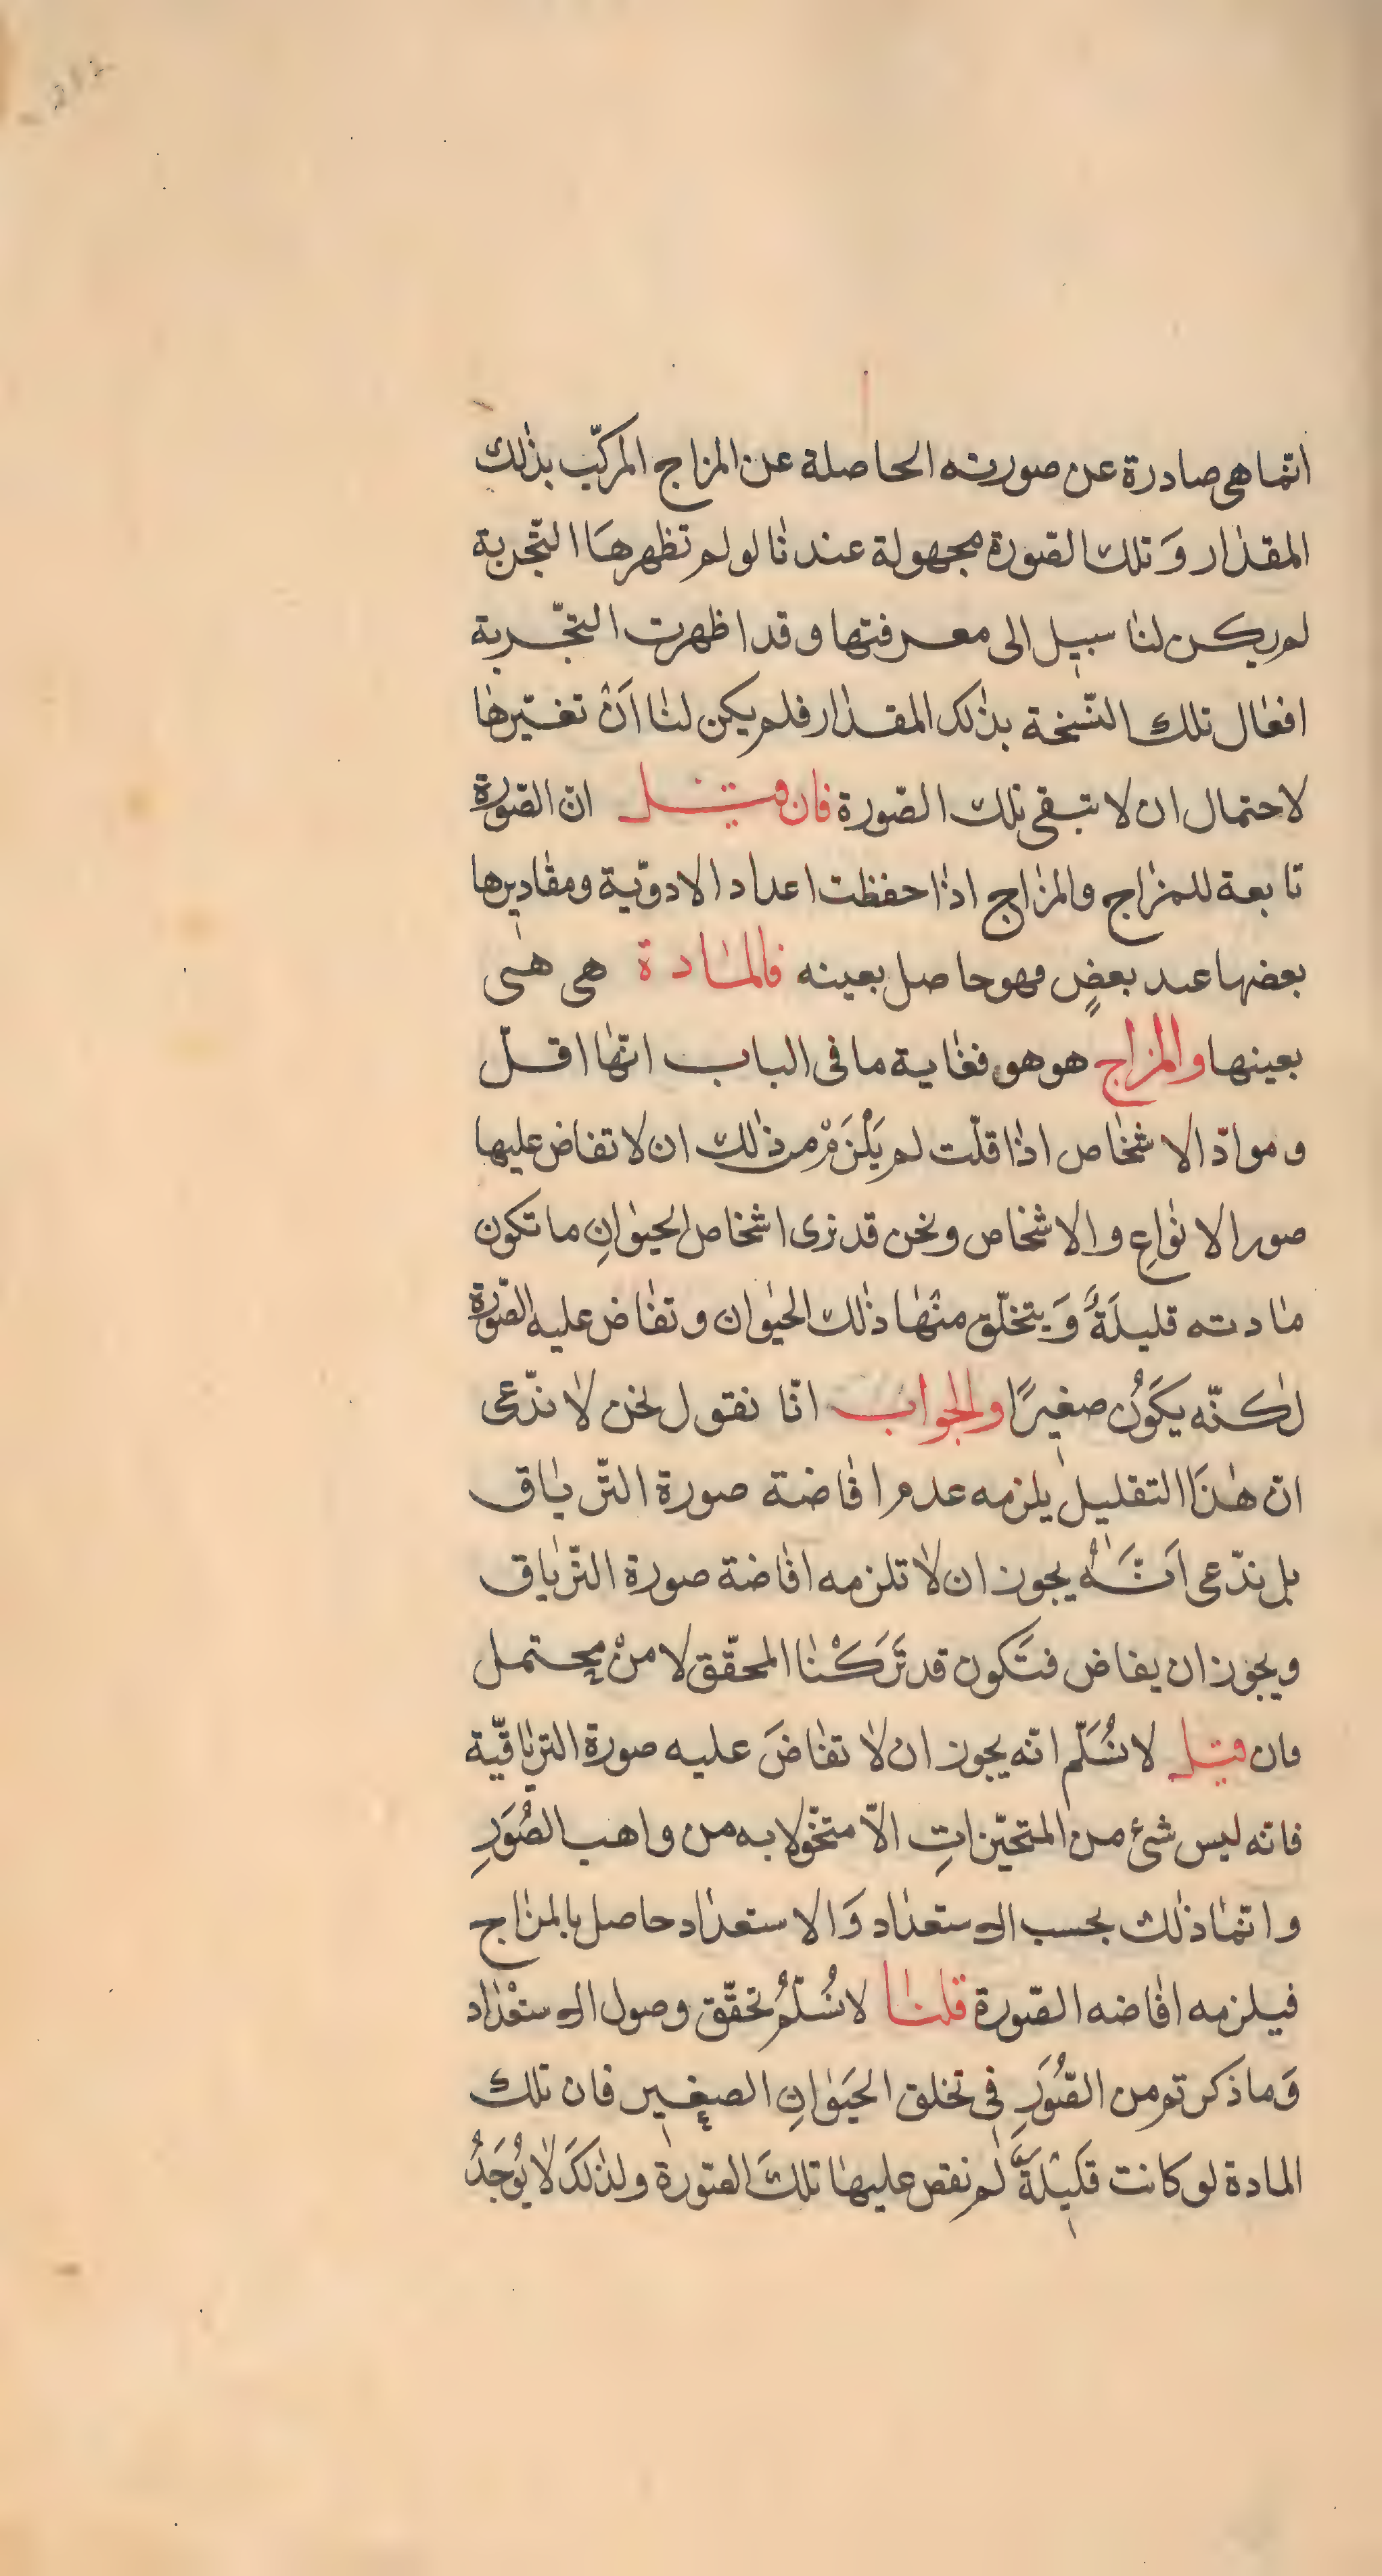 انّما هى صادرة عن صورته الحاصلة عن المزاج المركّب بذٰلك
المقدٰار وَ تلك الصّورة مجهولة عندنٰا لو لم تظهرهَا التّجربة
لم يكن لنٰا سبيل الى معرفتها و قد اظهرت التّجربة
افعٰال تلك النّسخة بذٰلك المقدٰار فلم يكن لنٰا اَنْ تغيّرهٰا
لاحتمال ان لا تبقى تلك الصّورة فان قيل انّ الصّورة
تابعة للمزٰاج والمزٰاج اذٰا حفظت اعداد الادويّة ومقٰاديرها
بعضها عند بعضٍ فهو حاصل بعينه فالمٰادة هى هى
بعينها والمزاج هو هو فغٰاية ما فى الباب انّهٰا اقلّ
و موادّ الاشخٰاص اذٰا قلّت لم يَلْزَمْ من ذٰلك ان لا تفاض عليها
صور الانوٰاعِ والاشخٰاص ونحن قد نرى اشخاص الحيوٰانِ ما تكون
مٰادته قليلَةً وَ يتخلّق منْهٰا ذٰلك الحيوٰان و تفٰاض عليه الصّورة
لٰكنّه يكَوُن صغيرًا والجواب انّا نقول نحن لاٰ ندّعى
انّ هٰذَا التقليل يلزمه عدم افٰاضة صورة التّريٰاق
بل ندّعى اَنَّهُ يجوز ان لاٰ تلزمه افٰاضة صورة التّريٰاق
ويجوز ان يفاض فتَكون قد تَرَكْنٰا المحقّق لا منْ محتمل
فان قيل لا نُسَلّم انّه يجوز ان لاٰ تفٰاضَ عليه صورة التريٰاقيّة
فانّه ليس شئ من المتحيّزاتِ الاّ متخوّلا به من واهب الصُوَرِ
و انّمٰا ذٰلك بحسب الاستعدٰاد وَ الاستعدٰاد حاصل بالمزٰاج
فيلزمه افٰاضه الصّورة قلنٰا لا نُسَلّمُ تحقّق وصول الاستعْدٰاد
وَ ما ذكرتم من الصُّوَرِ فى تخلق الحيَوٰانِ الصغيرِ فان تلك
المادة لو كانت قَليْلَةً لم نفض عليهٰا تلكَ الصّورة ولذٰلكَ لاٰ يُوجَدُ